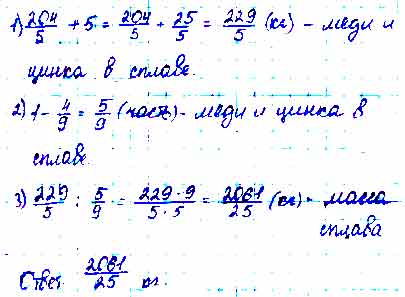 1) 204/5 + 5 = 204/5 + 25/5 = 229/5 (кг) - меди и
цинка в сплаве.
2) 1 - 4/9 = 5/9 (часть) - меди и цинка в
сплаве.
3) 229/5 : 5/9 = 229·9/5·5 = 2061/25 (кг) - масса
сплава
Ответ 2061/25 кг.